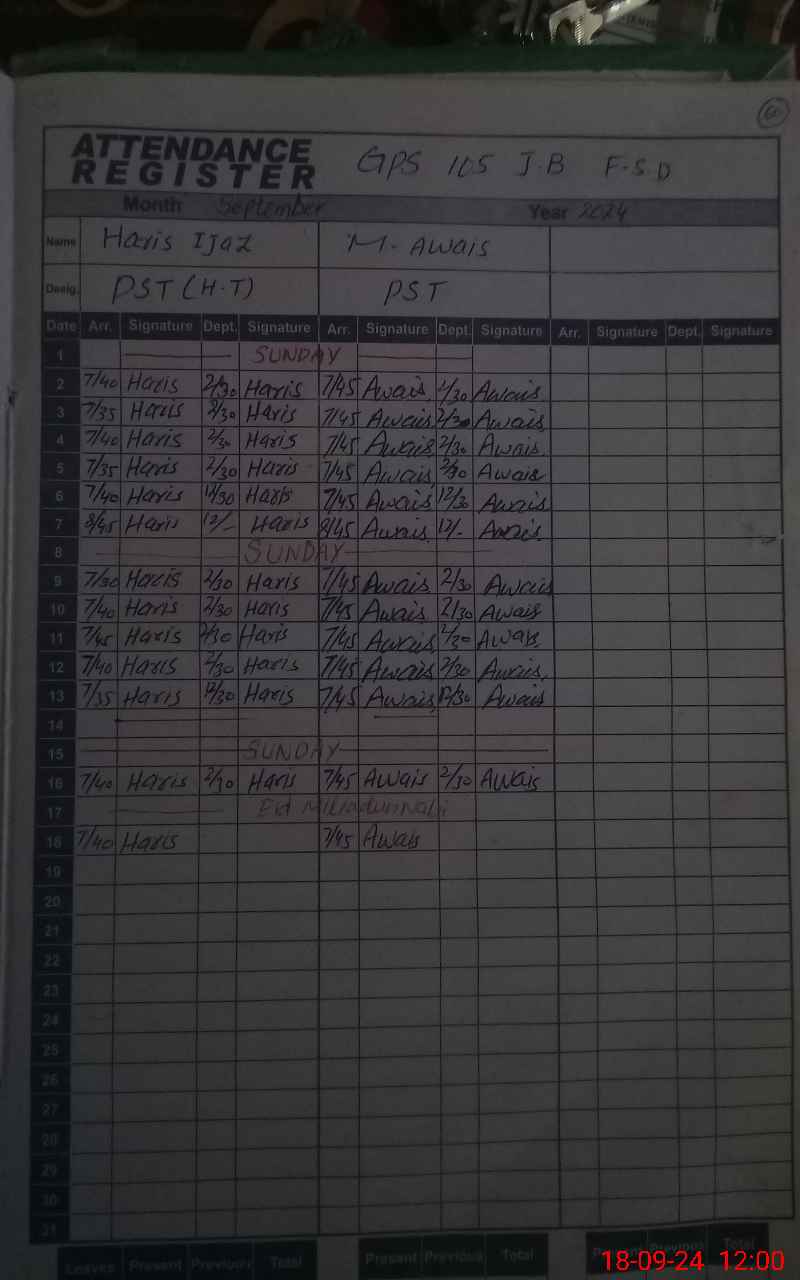 60
ATTENDANCE REGISTER GPS 105 J.B F.S.D
Month September Year 2024
Name Haris Ijaz M. Awais
Desig. PST (H.T) PST
Date Arr. Signature Dept. Signature Arr. Signature Dept. Signature Arr. Signature Dept. Signature
1 SUNDAY
2 7/40 Haris 2/30 Haris 7/45 Awais 2/30 Awais
3 7/35 Haris 2/30 Haris 7/45 Awais 2/30 Awais
4 7/40 Haris 2/30 Haris 7/45 Awais 2/30 Awais
5 7/35 Haris 2/30 Haris 7/45 Awais 2/30 Awais
6 7/40 Haris 12/30 Haris 7/45 Awais 12/30 Awais
7 8/45 Haris 12/- Haris 8/45 Awais 12/- Awais
8 SUNDAY
9 7/30 Haris 2/30 Haris 7/45 Awais 2/30 Awais
10 7/40 Haris 2/30 Haris 7/45 Awais 2/30 Awais
11 7/45 Haris 2/30 Haris 7/45 Awais 2/30 Awais
12 7/40 Haris 2/30 Haris 7/45 Awais 2/30 Awais
13 7/35 Haris 12/30 Haris 7/45 Awais 12/30 Awais
14
15 SUNDAY
16 7/40 Haris 2/30 Haris 7/45 Awais 2/30 Awais
17 Eid
18 7/40 Haris 7/45 Awais
19
20
21
22
23
24
25
26
27
28
29
30
31
Leaves Present Previous Total Present Previous Total Present Previous Total
18-09-24 12:00